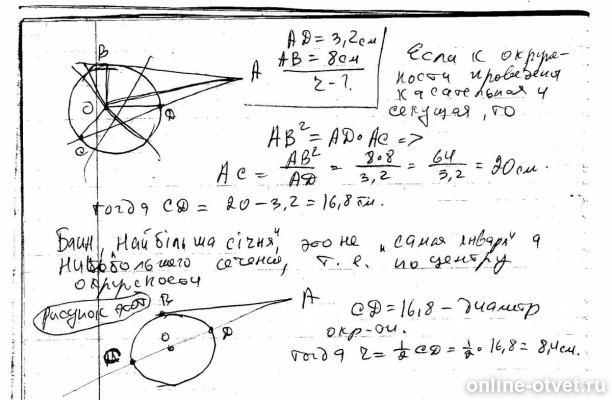 AD = 3,2 см
AB = 8 см
r - ?
Если к окруж-
ности проведена
касательная и
секущая, то
B
A
O
D
C
AB² = AD · AC =>
AC = AB²/AD = 8·8/3,2 = 64/3,2 = 20 см.
тогда CD = 20 - 3,2 = 16,8 см.
"Найбільша січня", это не "самая января" а
сечение, т. е. по центру
окружности
рисунок этот
B
A
O
D
CD = 16,8 - диаметр
окр-ти.
тогда r = 1/2 CD = 1/2 · 16,8 = 8,4 см.
online-otvet.ru